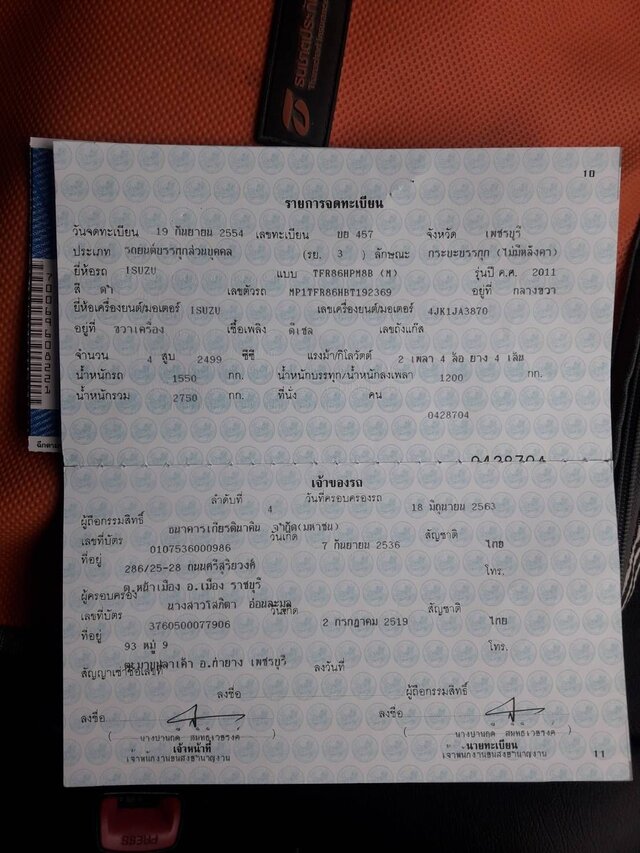 ธนชาตประกัน
10
รายการจดทะเบียน
วันจดทะเบียน 19 กันยายน 2554 เลขทะเบียน บย 457 จังหวัด เพชรบุรี
ประเภท รถยนต์บรรทุกส่วนบุคคล (รย. 3 ) ลักษณะ กระบะบรรทุก (ไม่มีหลังคา)
ยี่ห้อรถ ISUZU แบบ TFR86HPM8B (M) รุ่นปี ค.ศ. 2011
สี ดำ เลขตัวรถ MP1TFR86HBT192369 อยู่ที่ กลางขวา
ยี่ห้อเครื่องยนต์/มอเตอร์ ISUZU เลขเครื่องยนต์/มอเตอร์ 4JK1JA3870
อยู่ที่ ขวาเครื่อง เชื้อเพลิง ดีเซล เลขถังแก๊ส
จำนวน 4 สูบ 2499 ซีซี แรงม้า/กิโลวัตต์ 2 เพลา 4 ล้อ ยาง 4 เส้น
น้ำหนักรถ 1550 กก. น้ำหนักบรรทุก/น้ำหนักลงเพลา 1200 กก.
น้ำหนักรวม 2750 กก. ที่นั่ง คน
0428704
0428704
เจ้าของรถ
ลำดับที่ 4 วันที่ครอบครองรถ 18 มิถุนายน 2563
ผู้ถือกรรมสิทธิ์ ธนาคารเกียรตินาคิน จำกัด(มหาชน)
เลขที่บัตร 0107536000986 วันเกิด 7 กันยายน 2536 สัญชาติ ไทย
ที่อยู่ 286/25-28 ถนนศรีสุริยวงศ์ โทร.
ต.หน้าเมือง อ.เมือง ราชบุรี
ผู้ครอบครอง นางสาวโสภิตา อ่อนละมูล
เลขที่บัตร 3760500077906 วันเกิด 2 กรกฎาคม 2519 สัญชาติ ไทย
ที่อยู่ 93 หมู่ 9 โทร.
อ.ท่ายาง เพชรบุรี
สัญญาเช่าซื้อเลขที่ ลงวันที่
ลงชื่อ ผู้ถือกรรมสิทธิ์
ลงชื่อ ลงชื่อ
เจ้าหน้าที่ นายทะเบียน
เจ้าพนักงานขนส่งชำนาญงาน เจ้าพนักงานขนส่งชำนาญงาน
11
PRESS